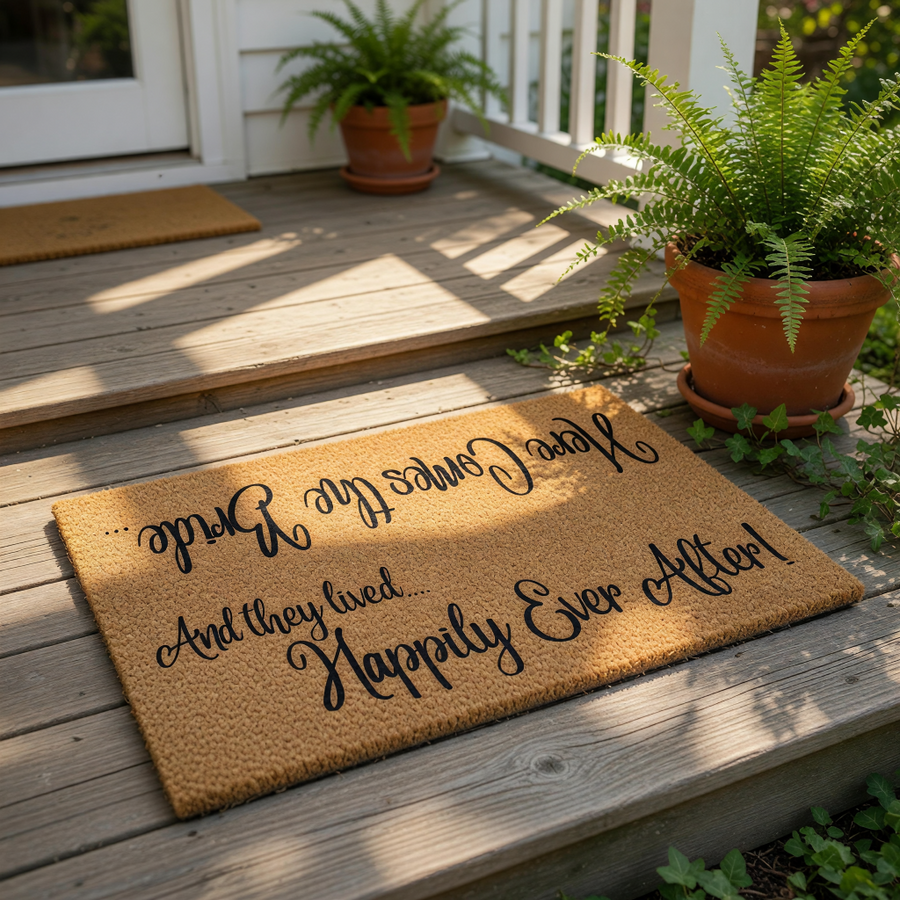 Here Comes the Bride...
And they lived....
Happily Ever After!